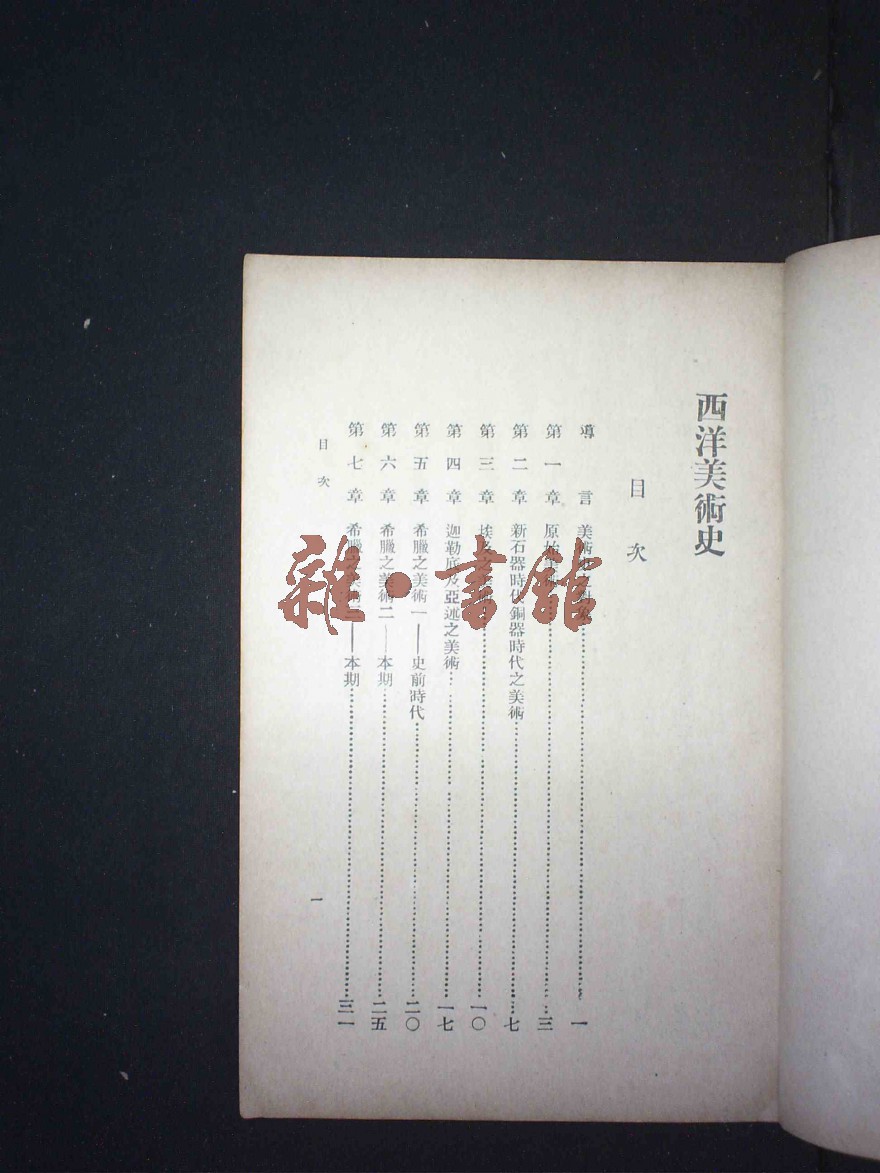 西洋美術史
目次
導言 美術史之對象 一
第一章 原始美術 三
第二章 新石器時代銅器時代之美術 七
第三章 埃及之美術 一〇
第四章 迦勒底及亞述之美術 一七
第五章 希臘之美術一——史前時代 二〇
第六章 希臘之美術二——本期 二五
第七章 希臘之美術——本期 三一
目次
一
雜·書館